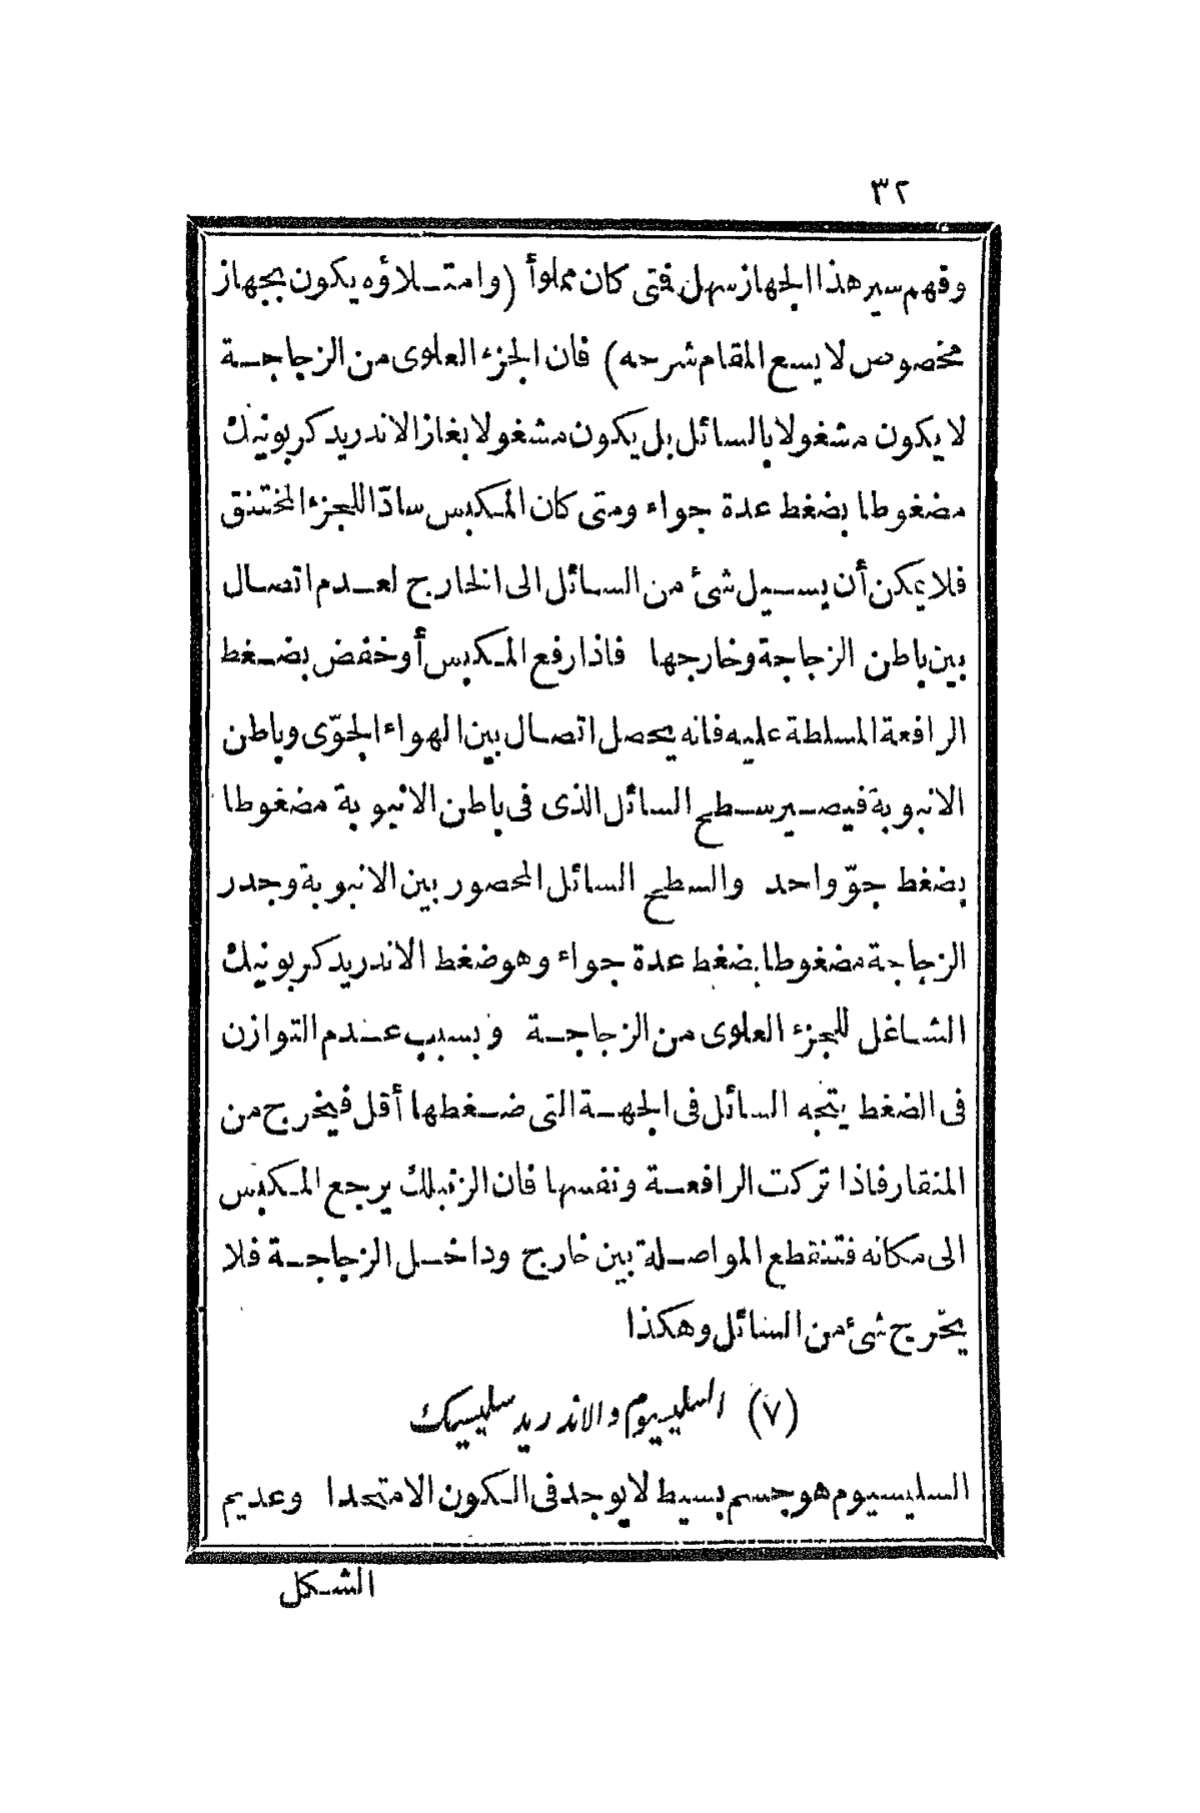 ٣٢
وفهم سير هذا الجهاز سهل فمتى كان مملوأ (وامتلاؤه يكون بجهاز
مخصوص لا يسع المقام شرحه) فان الجزء العلوى من الزجاجة
لا يكون مشغولا بالسائل بل يكون مشغولا بغاز الاندريد كربونيك
مضغوطا بضغط عدة جواء ومتى كان المكبس سادّا للجزء المختنق
فلا يمكن أن يسيل شئ من السائل الى الخارج لعدم اتصال
بين باطن الزجاجة وخارجها فاذا رفع المكبس أو خفض بضغط
الرافعة المسلطة عليه فانه يحصل اتصال بين الهواء الجوّى وباطن
الانبوبة فيصير سطح السائل الذى فى باطن الانبوبة مضغوطا
بضغط جوّ واحد والسطح السائل المحصور بين الانبوبة وجدر
الزجاجة مضغوطا بضغط عدة جواء وهو ضغط الاندريد كربونيك
الشاغل للجزء العلوى من الزجاجة وبسبب عدم التوازن
فى الضغط يتجه السائل فى الجهة التى ضغطها أقل فيخرج من
المنقار فاذا تركت الرافعة ونفسها فان الزنبلك يرجع المكبس
الى مكانه فتنقطع المواصلة بين خارج وداخل الزجاجة فلا
يخرج شئ من السائل وهكذا
(٧) السليسيوم والاندريد سليسيك
السليسيوم هو جسم بسيط لا يوجد فى الكون الا متحدا وعديم
الشكل